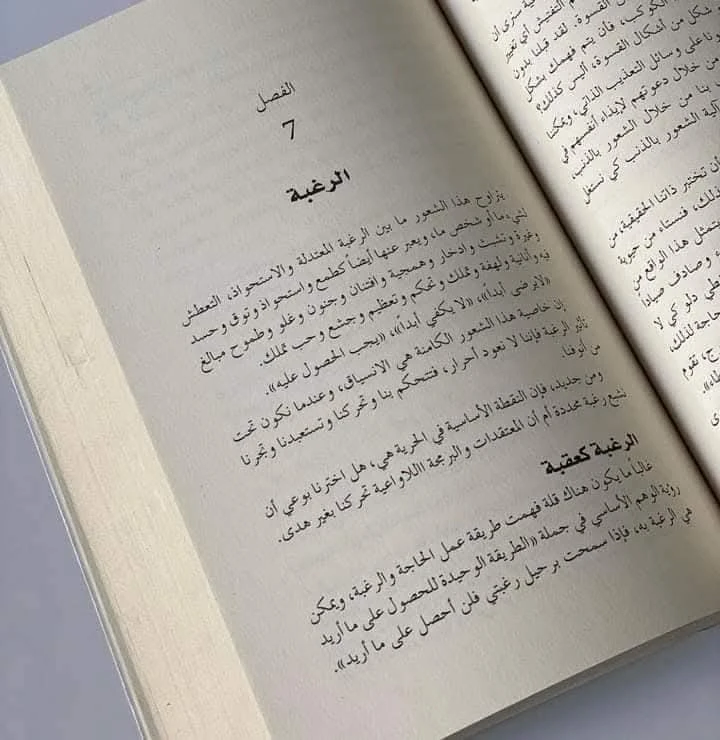 الفصل
7
الرغبة
يتراوح هذا الشعور ما بين الرغبة المعتدلة والاستحواذ، التعطش
لشيء ما أو شخص ما، ويعبر عنها أيضاً كطمع واستحواذ وتوق وحسد
وغيرة وتشبث وادخار وهمجية وافتتان وجنون وغلو وطموح مبالغ
فيه وأنانية ولهفة وتملك وتحكم وتعظيم وجشع وحب تملك.
«لا يرضى أبداً»، «لا يكفي أبداً»، «يجب الحصول عليه».
إن خاصية هذا الشعور الكامنة هي الانسياق، وعندما نكون تحت
تأثير الرغبة فإننا لا نعود أحرار، فتتحكم بنا وتحركنا وتستعبدنا وتجرنا
من أنوفنا.
ومن جديد، فإن النقطة الأساسية في الحرية هي، هل اخترنا بوعي أن
نشبع رغبة محددة أم أن المعتقدات والبرمجة اللاواعية تحركنا بغير هدى.
الرغبة كعقبة
غالباً ما يكون هناك قلة فهمت طريقة عمل الحاجة والرغبة، ويمكن
رؤية الوهم الأساسي في جملة «الطريقة الوحيدة للحصول على ما أريد
هي الرغبة به، فإذا سمحت برحيل رغبتي فلن أحصل على ما أريد».
التفتيش أي تغيير
شكل من أشكال القسوة. لقد قبلنا بدون
ونا على وسائل التعذيب الذاتي، ويمكننا
من خلال دعوتهم لإيذاء أنفسهم في
بنا من خلال الشعور بالذنب،
آلية الشعور بالذنب كي نستغل
ن تختبر ذاتنا الحقيقية، من
ذلك، فنستاء من حيوية
يتمثل هذا الواقع من
وصادف صياداً
دلو كي لا
حاجة لذلك،
تقوم